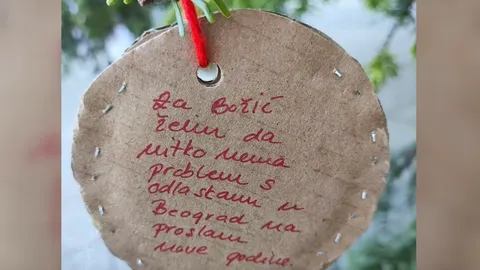 Za Božić
želim da
nitko nema
problem s
odlaskom u
Beograd na
proslavu
nove godine.